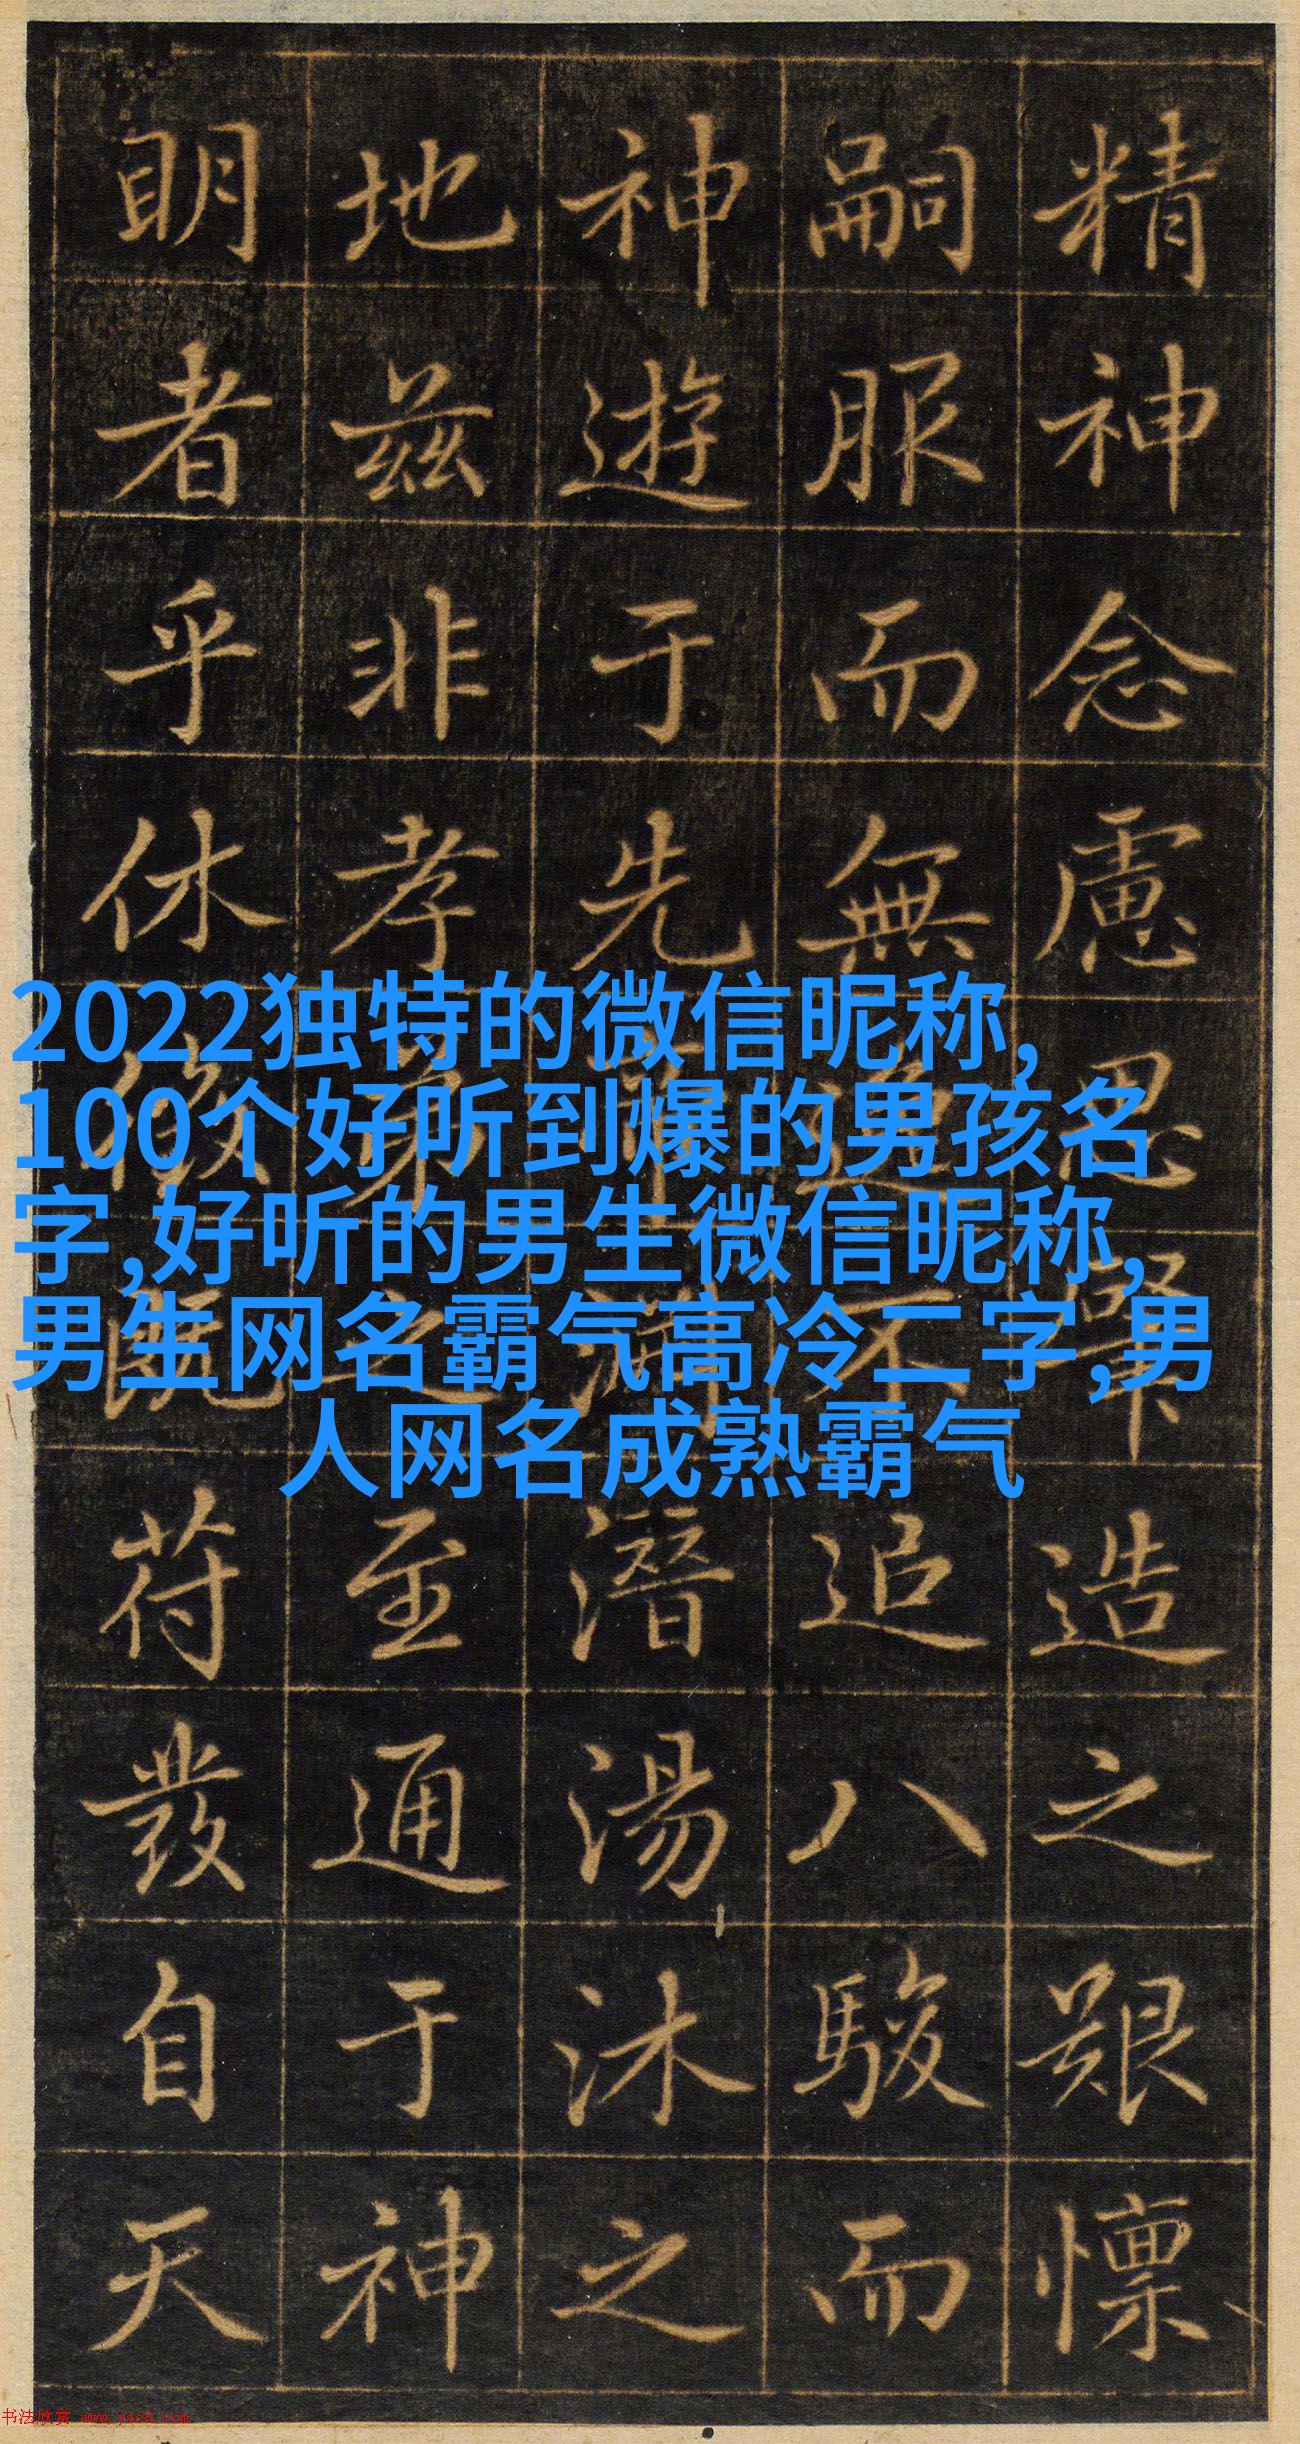 精神念慮思肇造之艱懍
嗣服而無逸不追八駿而
神遊于先帝淵潛湯沐之
地茲非孝弟之至通于神
明者乎休既苻發自天
2022独特的微信昵称,
100个好听到爆的男孩名
字,好听的男生微信昵称,
男生网名霸气高冷二字,男
人网名成熟霸气
书法欣赏 www.yac8.com